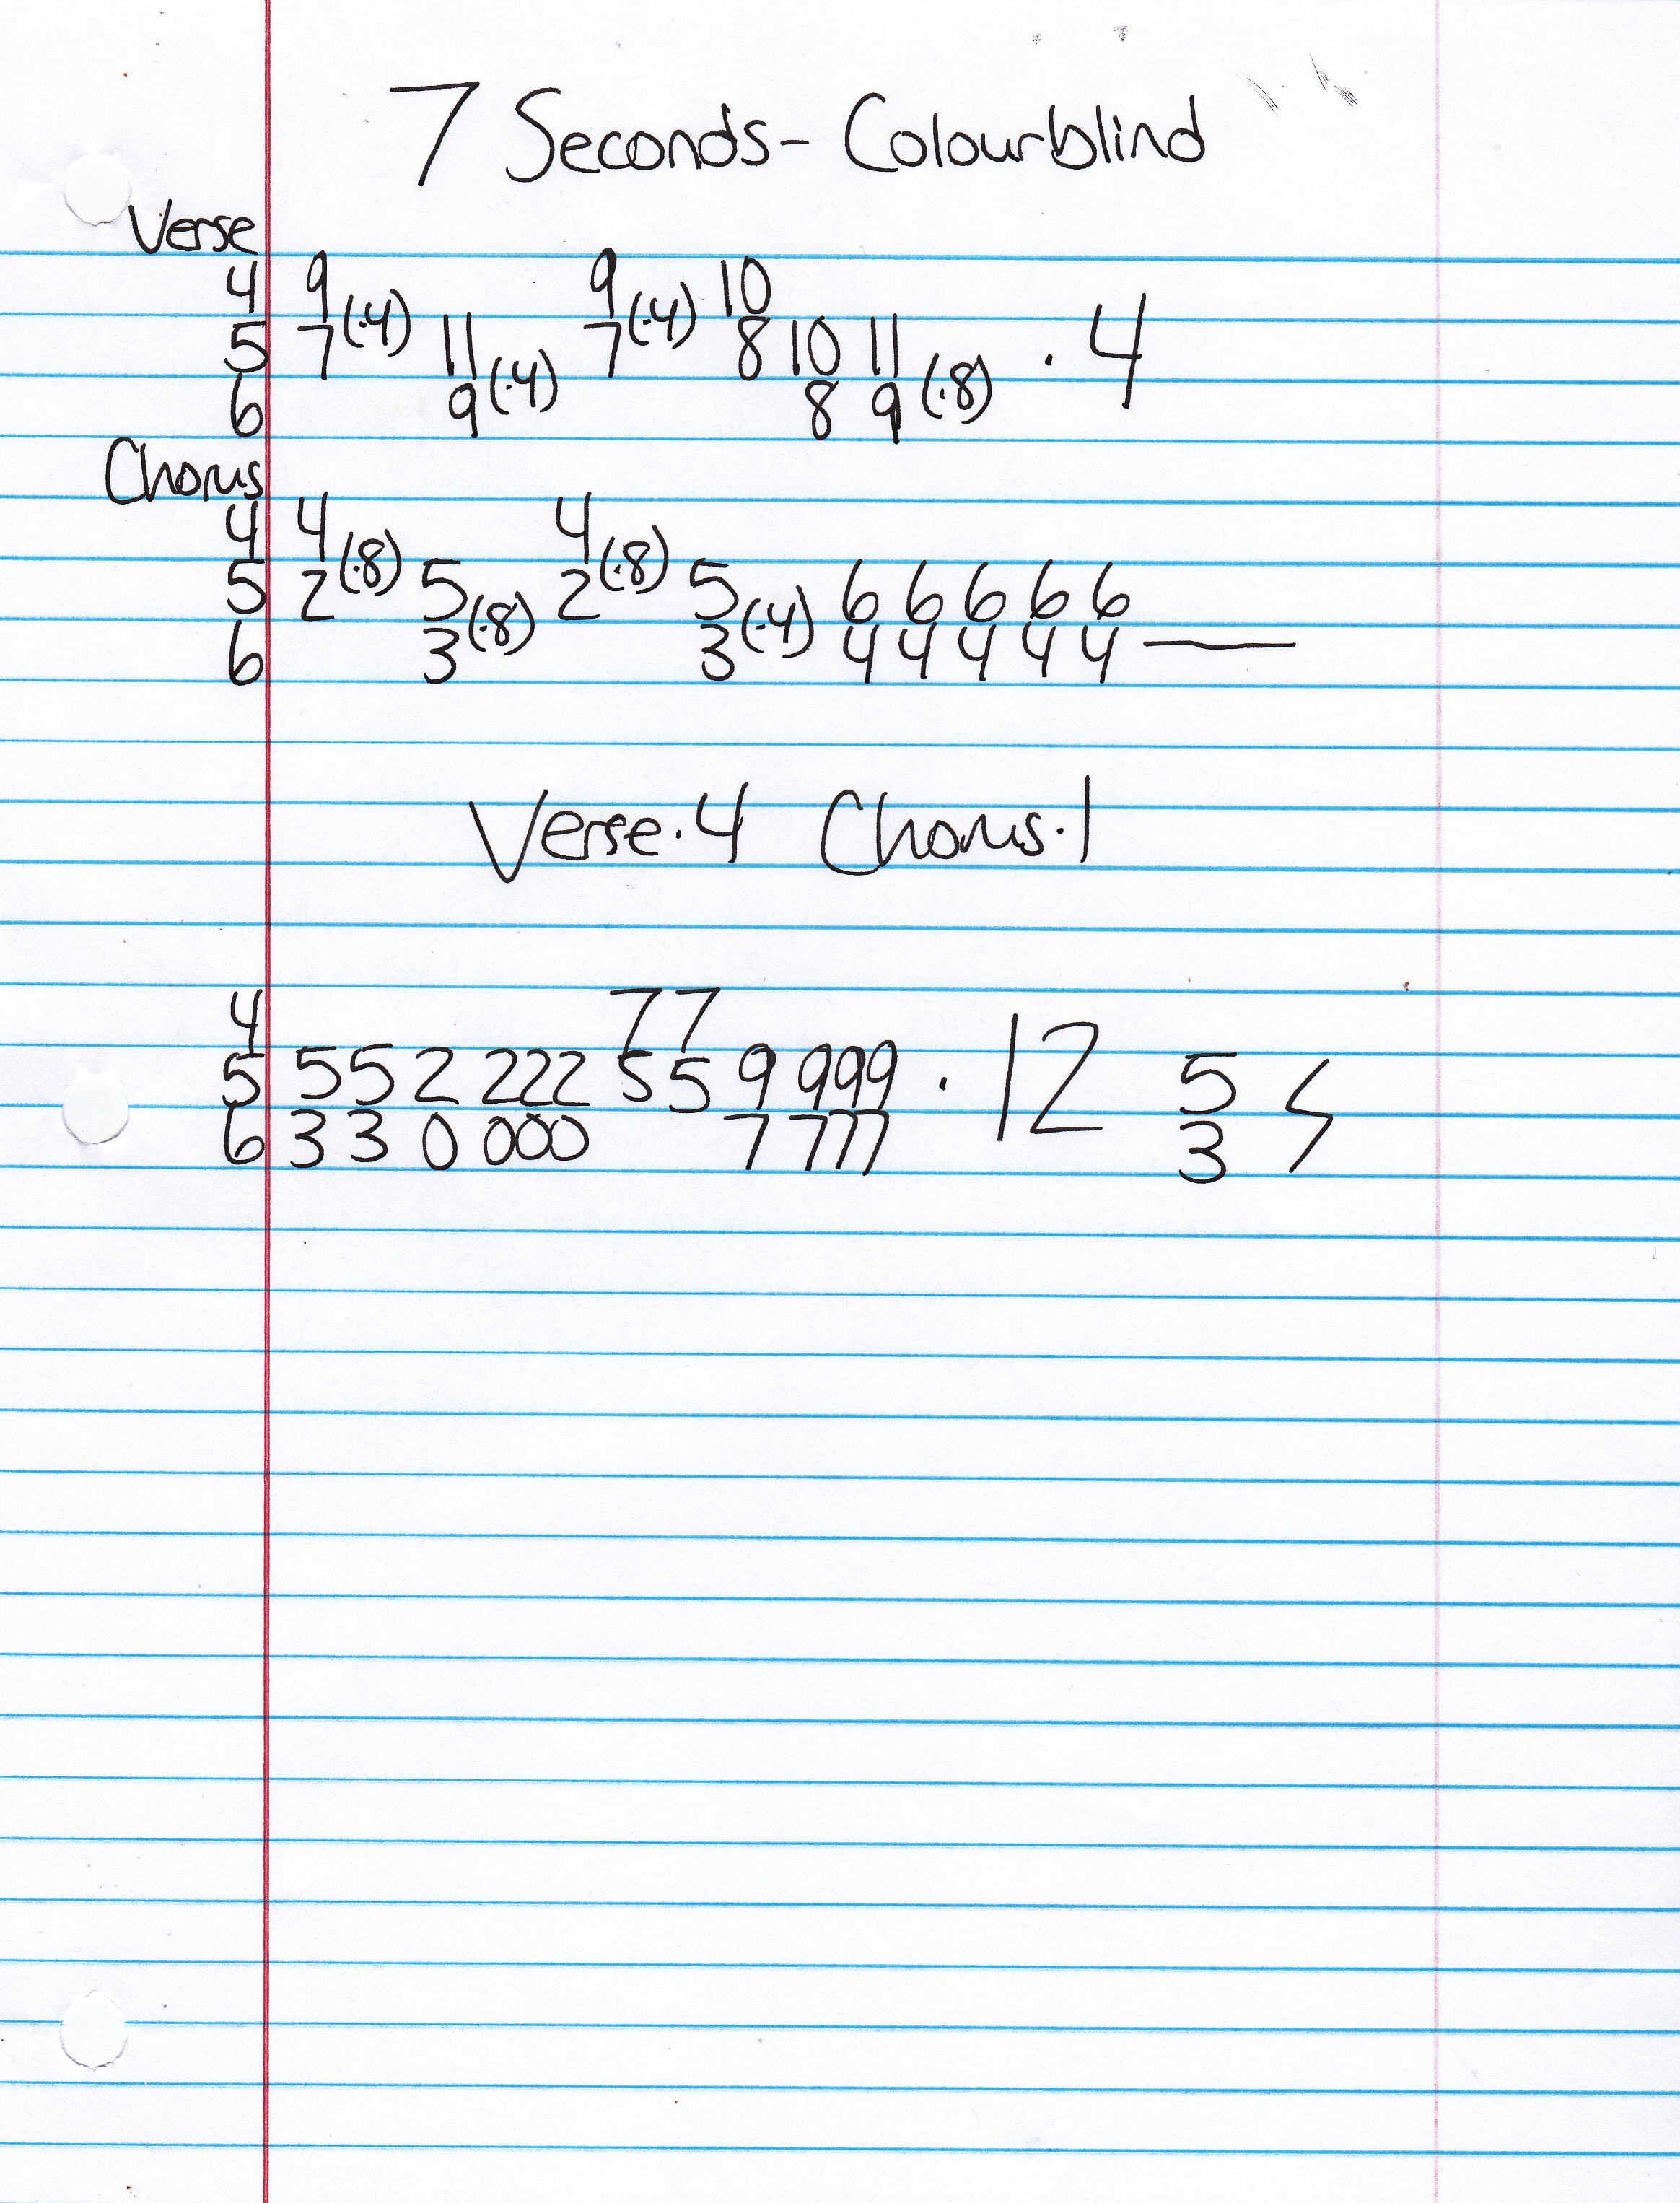 7 Seconds - Colourblind
Verse
4 9 9 10
5 7 (·4) 11 7 (·4) 8 10 11 · 4
6 9 (·4) 8 9 (·8)
Chorus
4 4 4
5 2 (·8) 5 2 (·8) 5 6 6 6 6 6
6 3 (·8) 3 (·4) 4 4 4 4 4 —
Verse·4 Chorus·1
4 7 7
5 5 5 2 2 2 2 5 5 9 9 9 9 · 12 5
6 3 3 0 0 0 0 7 7 7 7 3